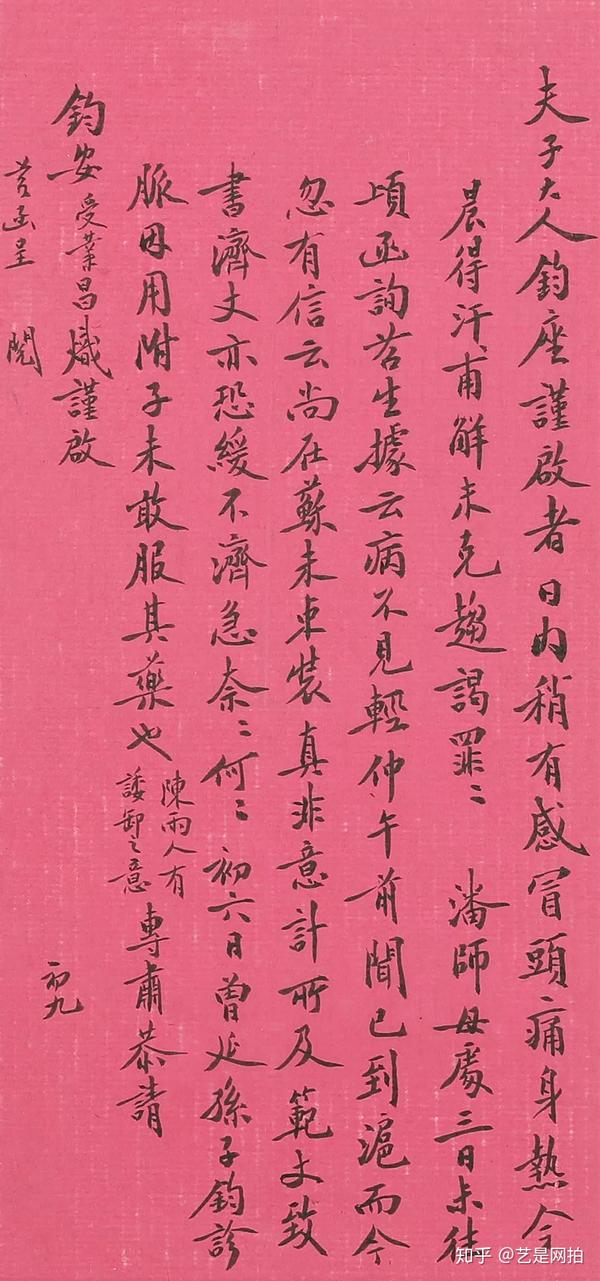 夫子大人鈞座謹啟者日內稍有感冒頭痛身熱今
晨得汗甫解未克趨謁罪〻 潘師母處三日未往
頃函詢若生據云病不見輕仲午前聞已到滬而今
忽有信云尚在蘇未束裝真非意計所及範丈致
書濟丈亦恐緩不濟急奈〻何〻初六日曾延孫子鈞診
脈因用附子未敢服其藥也
陳雨人有
諉卸之意
專肅恭請
鈞安受業昌熾謹啟
初九
若函呈 閱
知乎 @艺是网拍